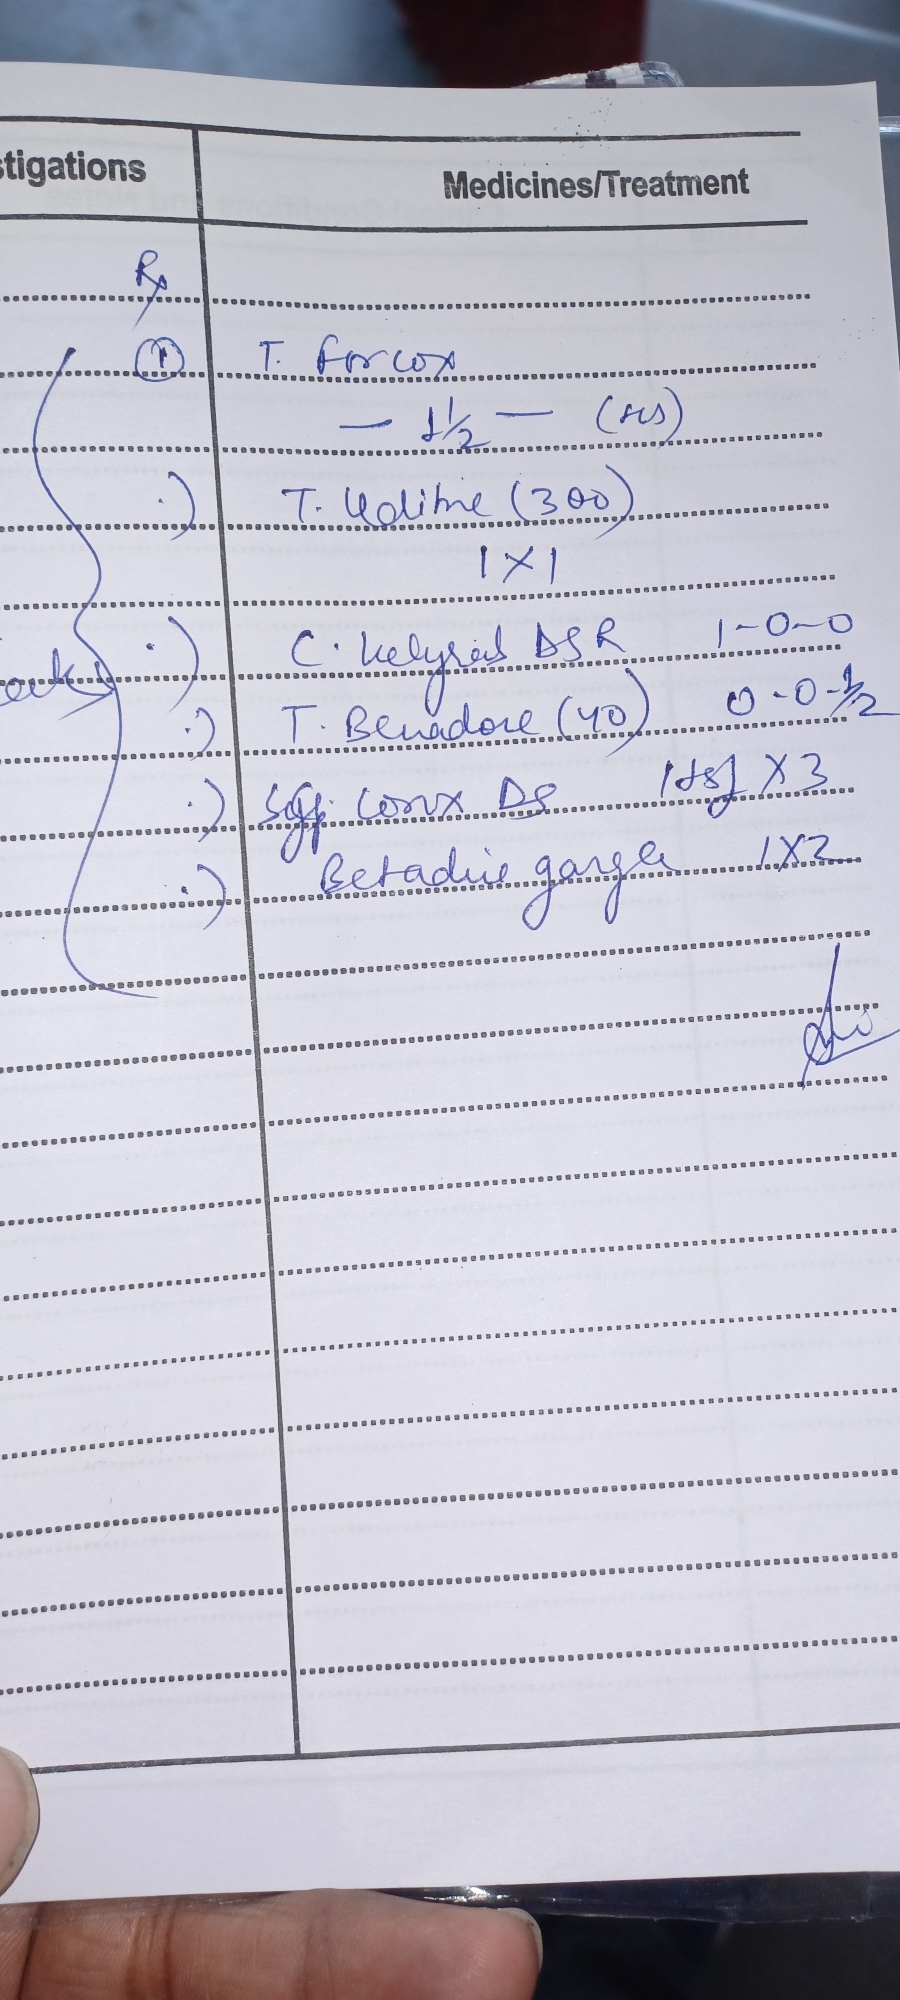 stigations
Medicines/Treatment
Rx
1 T. Forcox
— 1½ — (HS)
T. Udiliv (300)
1 X 1
C. DSR 1-0-0
T. (40) 0-0-½
Syp. DS 1 tsf X 3
Betadine gargle 1X2